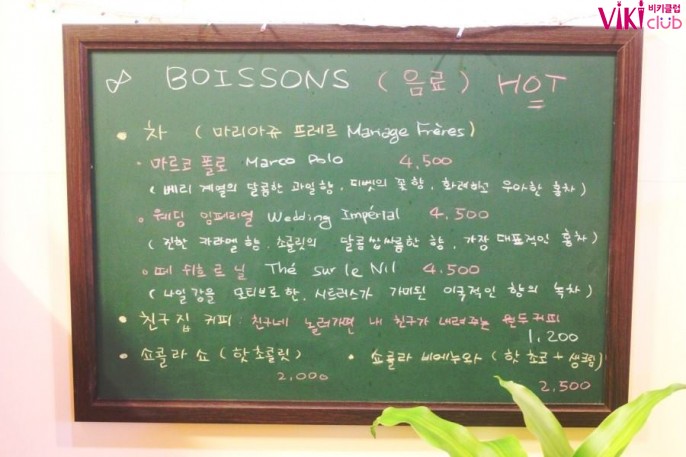 ViKi 비키클럽 club
∞ BOISSONS (음료) HOT
• 차 (마리아쥬 프레르 Mariage Frères)
• 마르코 폴로 Marco Polo 4,500
(베리 계열의 달콤한 과일향, 티벳의 꽃향, 화려하고 우아한 홍차)
• 웨딩 임페리얼 Wedding Impérial 4,500
(진한 카라멜 향, 초콜릿의 달콤쌉싸름한 향, 가장 대표적인 홍차)
• 떼 쉬르 르 닐 Thé sur le Nil 4,500
(나일강을 모티브로한, 시트러스가 가미된 이국적인 향의 녹차)
• 친구집 커피 : 친구네 놀러가면 내 친구가 내려주는 원두커피
1,200
• 쇼콜라 쇼 (핫초콜릿) • 쇼콜라 비에누와 (핫초코+생크림)
2,000 2,500